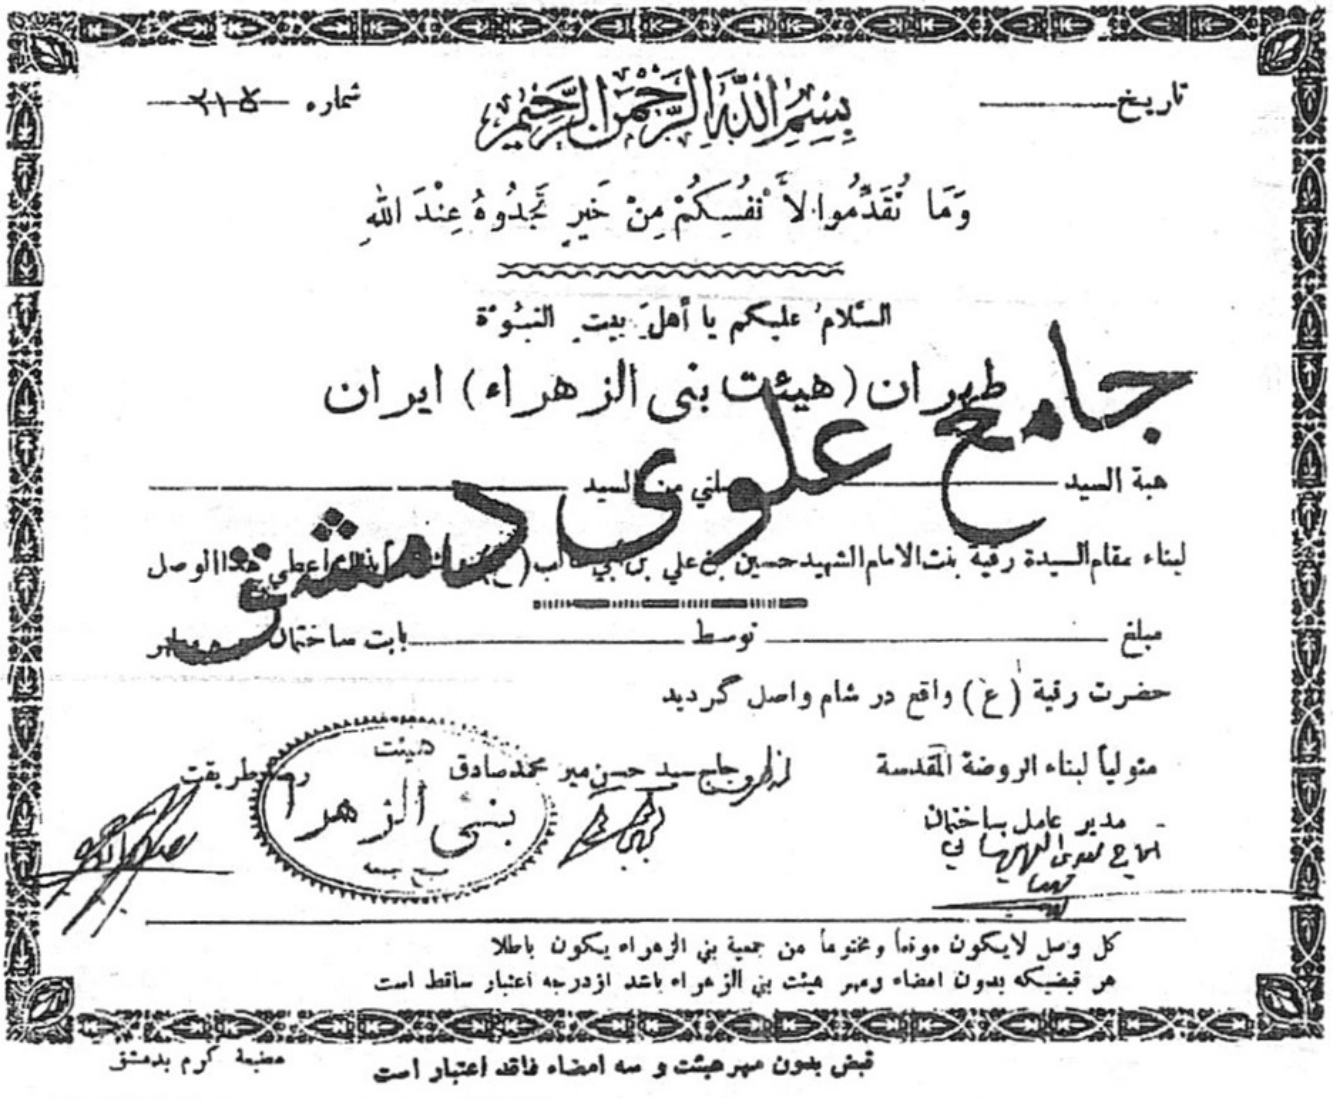 تاریخ
بِسْمِ اللَّهِ الرَّحْمَنِ الرَّحِيمِ
شماره ٢١٥
وَمَا تُقَدِّمُوا لأَنْفُسِكُمْ مِنْ خَيرٍ تَجِدُوهُ عِنْدَ اللهِ
السَّلامُ عليكم يا أهلَ بيتِ النبُوّة
طهران (هيئت بنى الزهراء) ايران
جامع علوى دمشق
هبة السيد
من السيد
لبناء مقام السيدة رقية بنت الامام الشهيد حسين بن علي بن ابي طالب (ع) اعطي هذا الوصل
مبلغ توسط بابت ساختمان
حضرت رقية (ع) واقع در شام واصل گردید
متولياً لبناء الروضة المقدسة
حاج سید حسن میر محمد صادق
طریقت
هیئت
بنی الزهراء
صبح جمعه
مدیر عامل ساختمان
كل وصل لايكون موقعاً ومختوماً من جمعية بني الزهراء يكون باطلا
هر قبضیکه بدون امضاء ومهر هیئت بني الزهراء باشد از درجه اعتبار ساقط است
قبض بدون مهر هیئت و سه امضاء فاقد اعتبار است
مطبعة كرم بدمشق